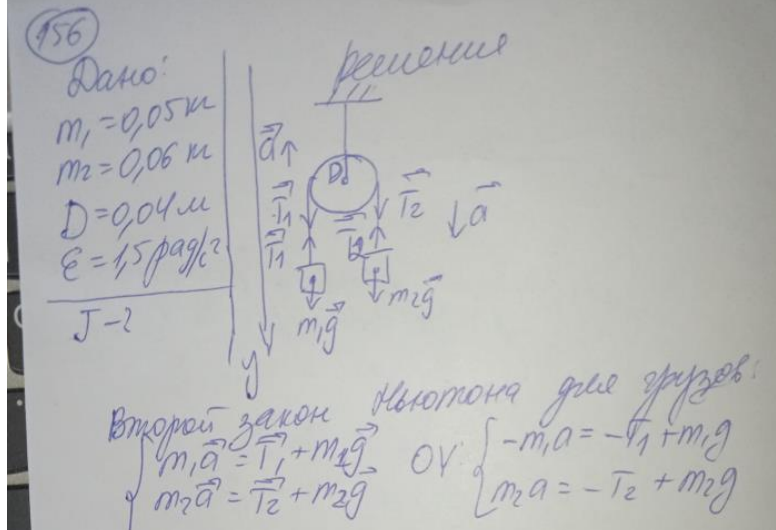 156
Дано:
m₁=0,05 кг
m₂=0,06 кг
D=0,04 м
ε=1,5 рад/с²
J-?
решения
a⃗ D
T⃗₁ T⃗₂ a⃗
T⃗₁ T⃗₂
m₁g⃗ m₂g⃗
y
Второй закон Ньютона для грузов:
m₁a⃗ = T⃗₁ + m₁g⃗ OY: -m₁a = -T₁ + m₁g
m₂a⃗ = T⃗₂ + m₂g⃗ m₂a = -T₂ + m₂g